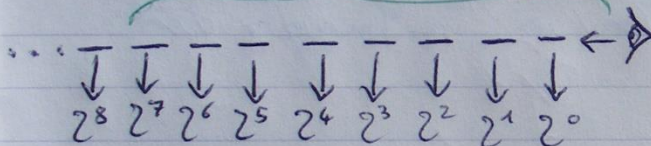 ... _ _ _ _ _ _ _ _ _ ←
↓ ↓ ↓ ↓ ↓ ↓ ↓ ↓ ↓
2⁸ 2⁷ 2⁶ 2⁵ 2⁴ 2³ 2² 2¹ 2⁰